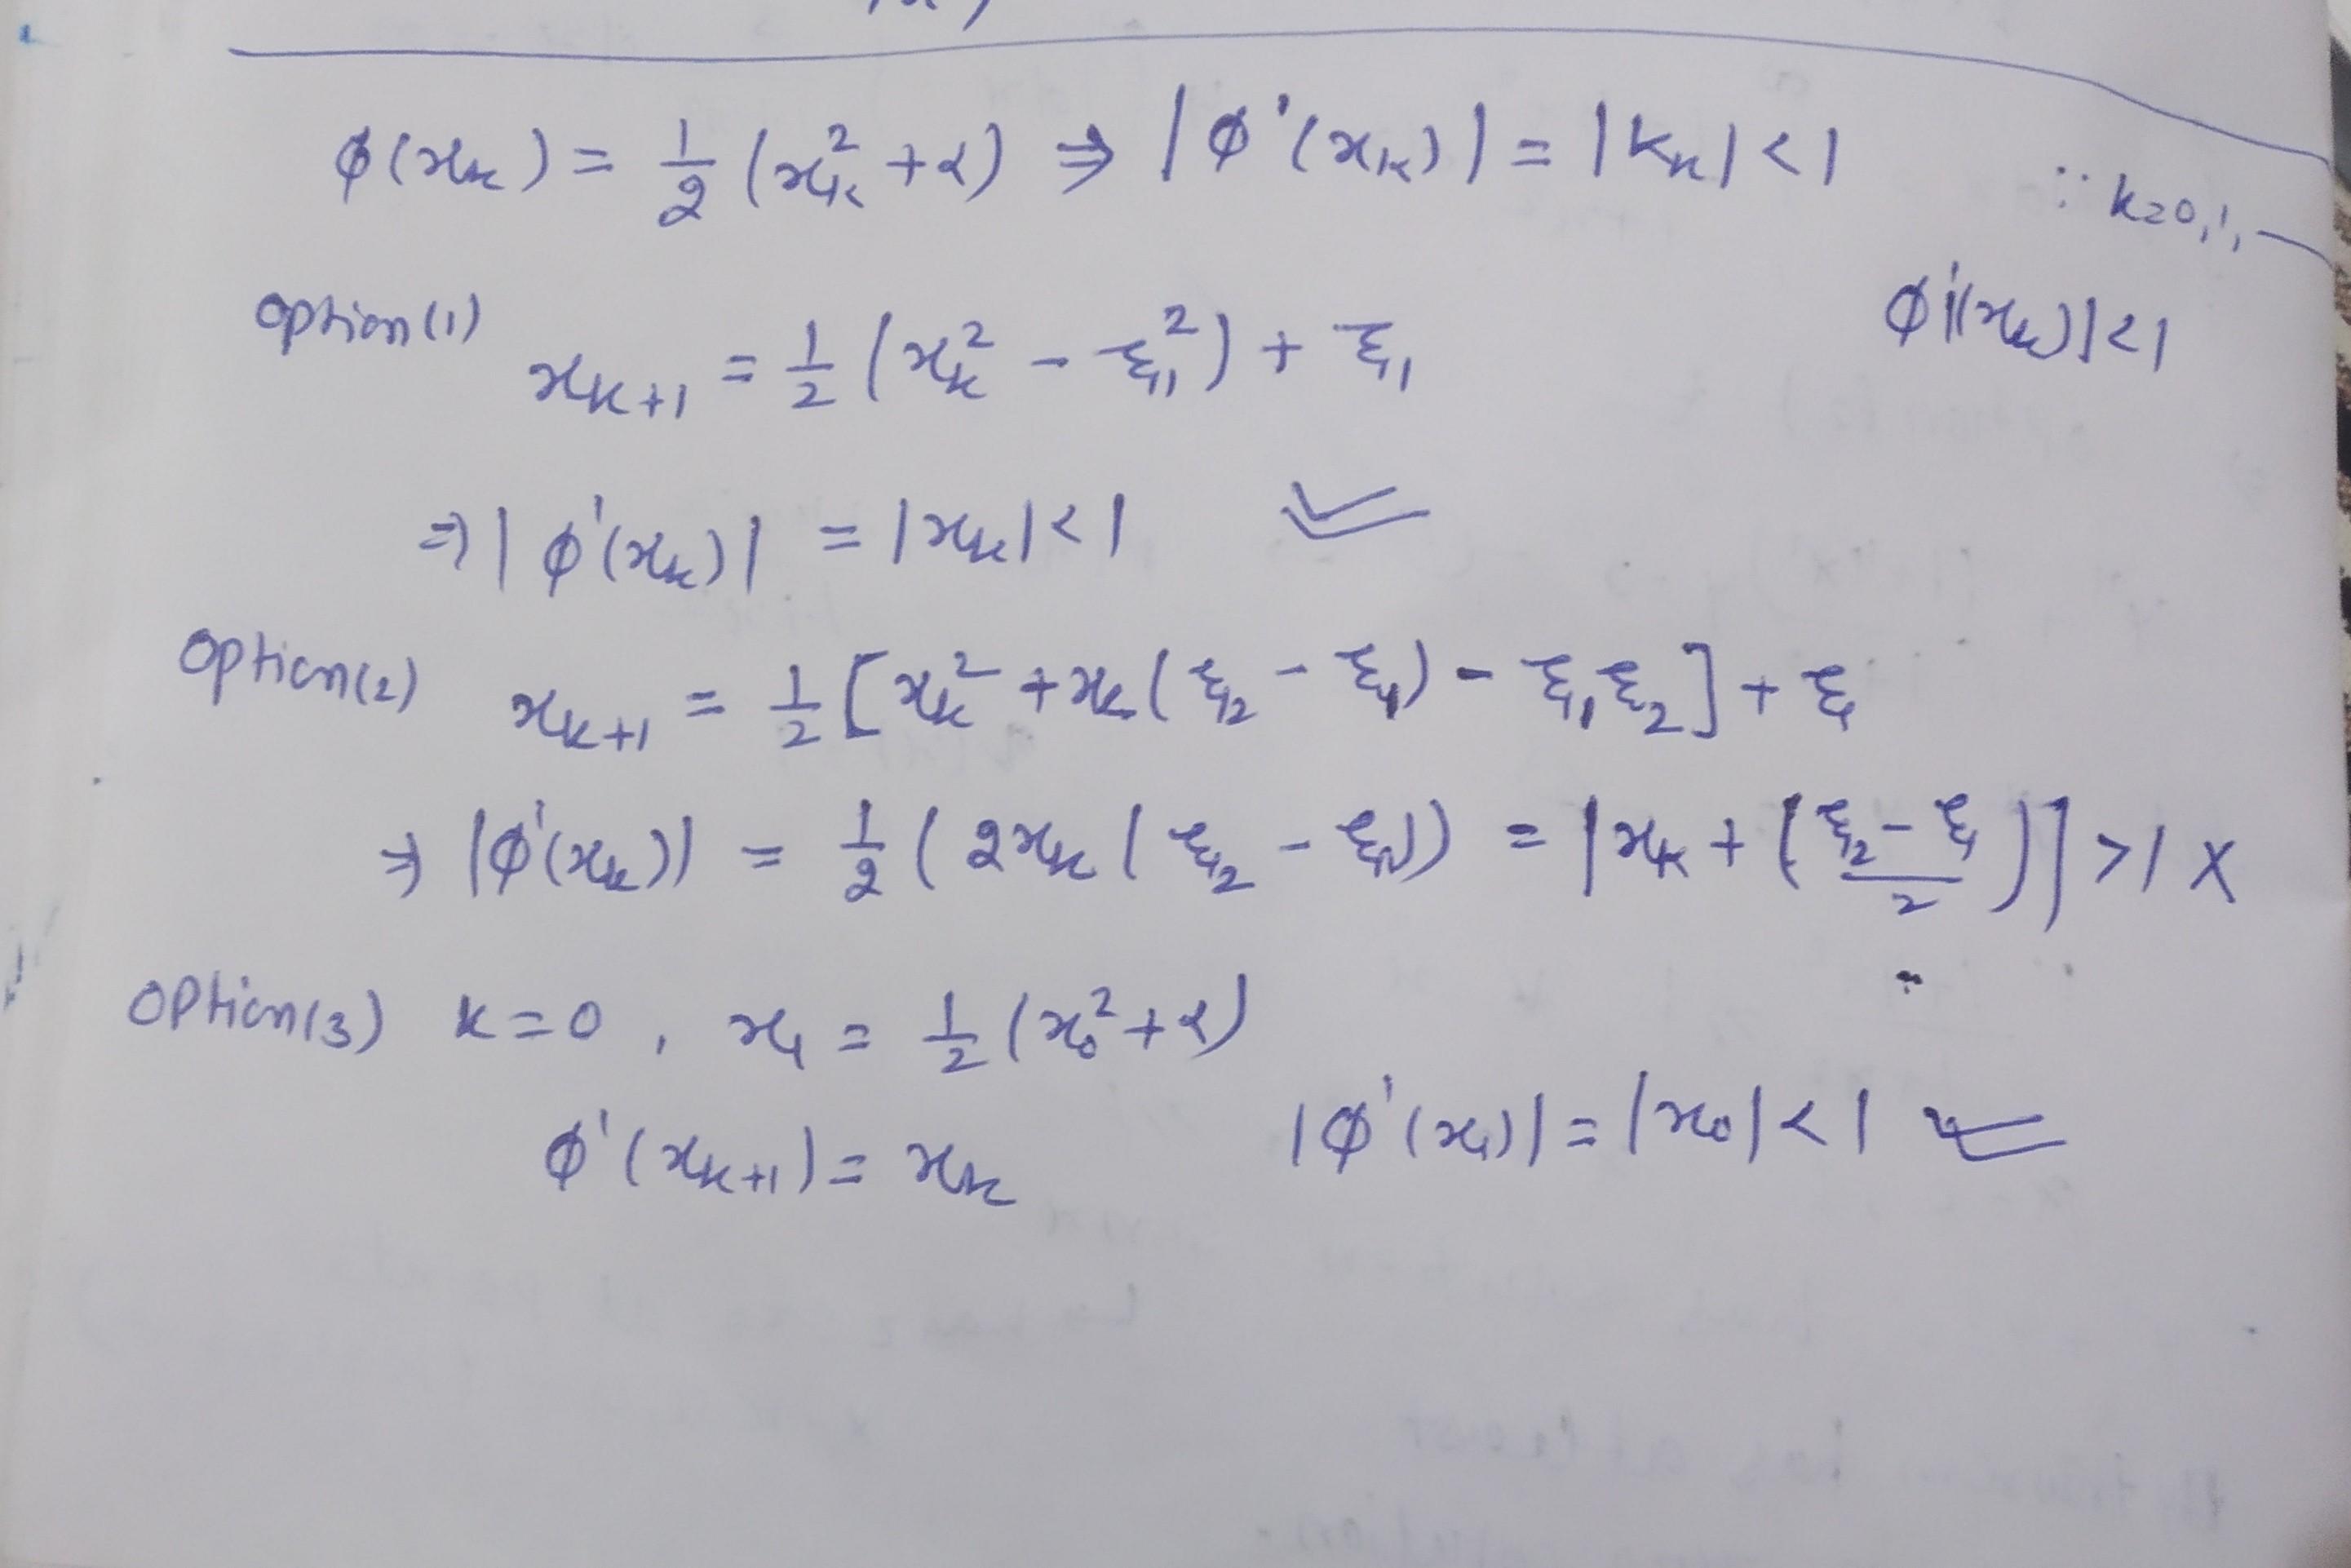 φ(xₖ) = 1/2 (xₖ² + α) ⇒ |φ'(xₖ)| = |kₙ| < 1
∵ k=0,1,
φ'|(xₖ)| < 1
option(1) xₖ₊₁ = 1/2 (xₖ² - ξ₁²) + ξ₁
⇒ |φ'(xₖ)| = |xₖ| < 1 ✓
Option(2) xₖ₊₁ = 1/2 [xₖ² + xₖ(ξ₂ - ξ₁) - ξ₁ξ₂] + ξ₁
⇒ |φ'(xₖ)| = 1/2 (2xₖ (ξ₂ - ξ₁)) = |xₖ + (ξ₂ - ξ₁ / 2)| > 1 X
OPtion(3) k=0, x₁ = 1/2 (x₀² + α)
φ'(xₖ₊₁) = xₖ |φ'(x₁)| = |x₀| < 1 ✓